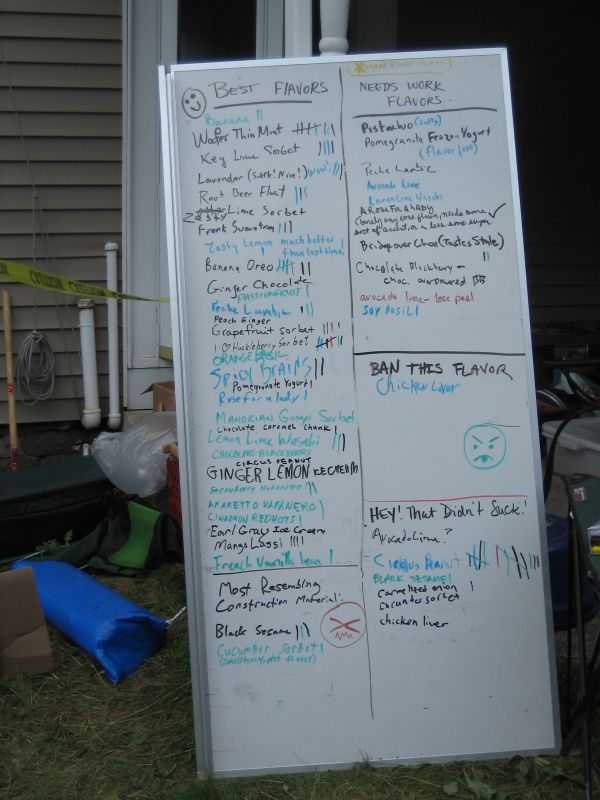 BEST FLAVORS
Banana ||
Wafer Thin Mint
Key Lime Sorbet |||
Lavendar (Subtle! Nice!) Wow!
Root Beer Float |||
Zesty Lime Sorbet
Frank Sumatra |||
Zesty Lemon much better
than last time!
Banana Oreo
Ginger Chocolate
PASSIONFRUIT |
Peche Lambic
Peach Ginger
Grapefruit Sorbet
I ♡ Huckleberry Sorbet
ORANGE BASIL
SPICY BRAINS ||
Pomegranate Yogurt |
Rose for a lady |
MANDRIAN Ginger Sorbet
Chocolate caramel chunk |
Lemon Lime Wasabi
CHOCOLATE BLACKBERRY
CIRCUS PEANUT
GINGER LEMON ICE CREAM
Strawberry Habanero
AMARETTO HABANERO
CINNAMON REDHOTS |
Earl Gray Ice Cream
Mango Lassi ||||
French Vanilla bean |
Most Resembling
Construction Material:
Black Sesame |||
Cucumber Sorbet |
(consistency, not flavor)
NEEDS WORK
FLAVORS...
Pistachio (salty)
Pomegranite Frozen Yogurt
(flavorless)
Peche Lambic
Avocado Lime
Lemon Lime Wasabi
A ROSE FOR A LADY
Bridge over Choc (Tastes Stale)
Chocolate Blackberry -
choc. overpowered BB
avocado lime - less peel
Soy Basil |
BAN THIS FLAVOR
Chicken Liver
HEY! That Didn't Suck!
Avocado Lime?
Circus Peanut
BLACK SESAME |
Carmelized onion |
Cucumber sorbet
chicken liver
CAUTION